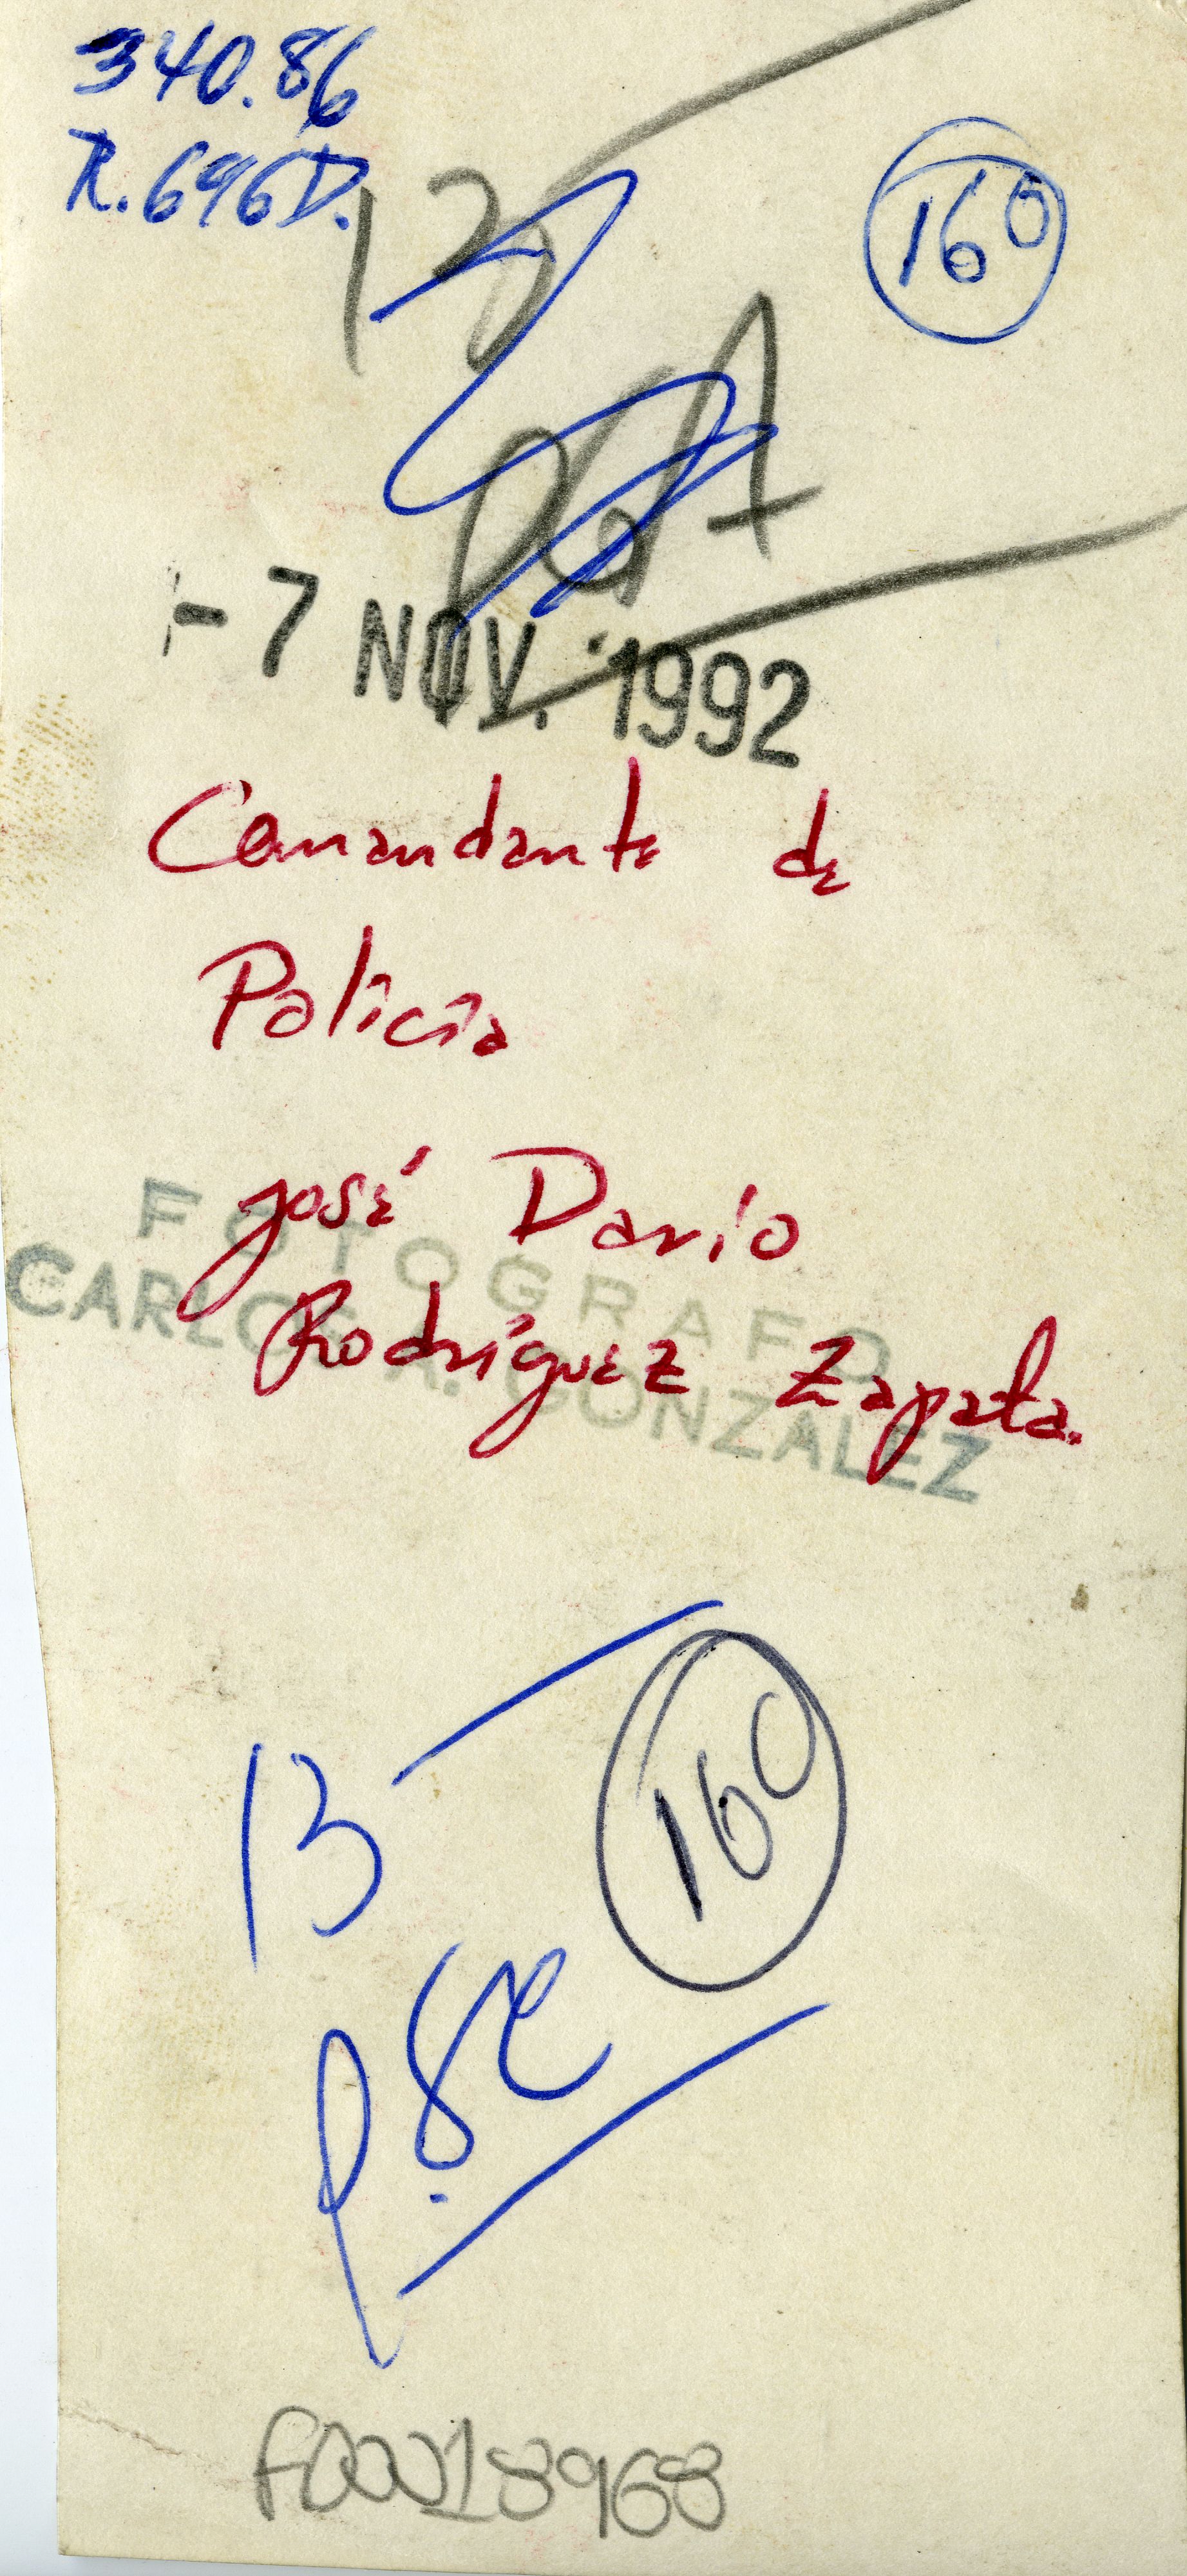 340.86
R.696D.
160
13
- 7 NOV. 1992
Comandante de
Policía
José Darío
Rodríguez Zapata.
FOTOGRAFO
CARLOS A. GONZALEZ
13
160
F00018968